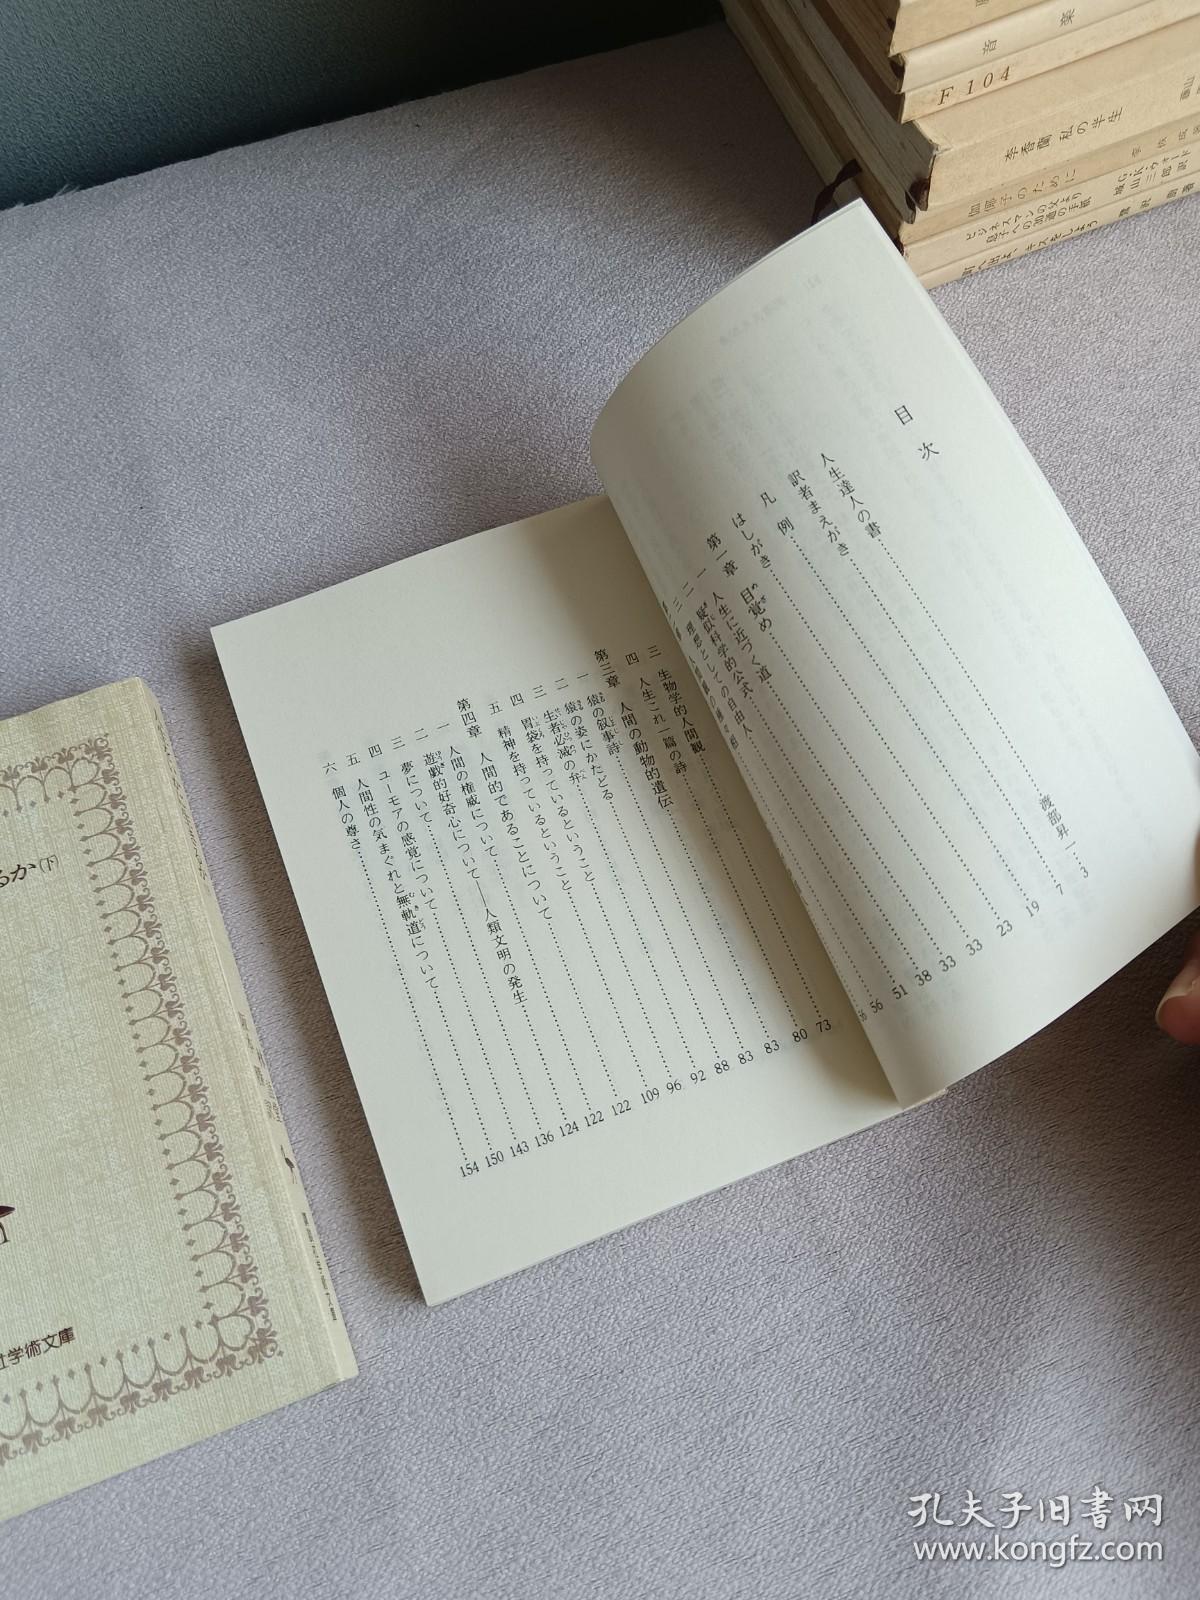 目次
人生達人の書……渡部昇一…3
訳者まえがき……7
凡例……19
はしがき……23
第一章 目覚め……33
一 人生に近づく道……33
二 疑似科学的公式……38
三 理想としての自由人……51
56
56
三 生物学的人間観……73
四 人生これ一篇の詩……80
第三章 人間の動物的遺伝……83
一 猿の叙事詩……83
二 猿の姿にかたどる……88
三 生者必滅の弁……92
四 胃袋を持っているということ……96
五 精神を持っているということ……109
第四章 人間的であることについて……122
一 人間の権威について……122
二 遊戯的好奇心について——人類文明の発生……124
三 夢について……136
四 ユーモアの感覚について……143
五 人間性の気まぐれと無軌道について……150
六 個人の尊さ……154
るか(下)
社学術文庫
音楽
F 104
李香蘭 私の半生
伽倻子のために
ビジネスマンの父より
息子への30通の手紙
G・K・ウォード
城山三郎訳
孔夫子旧书网
www.kongfz.com